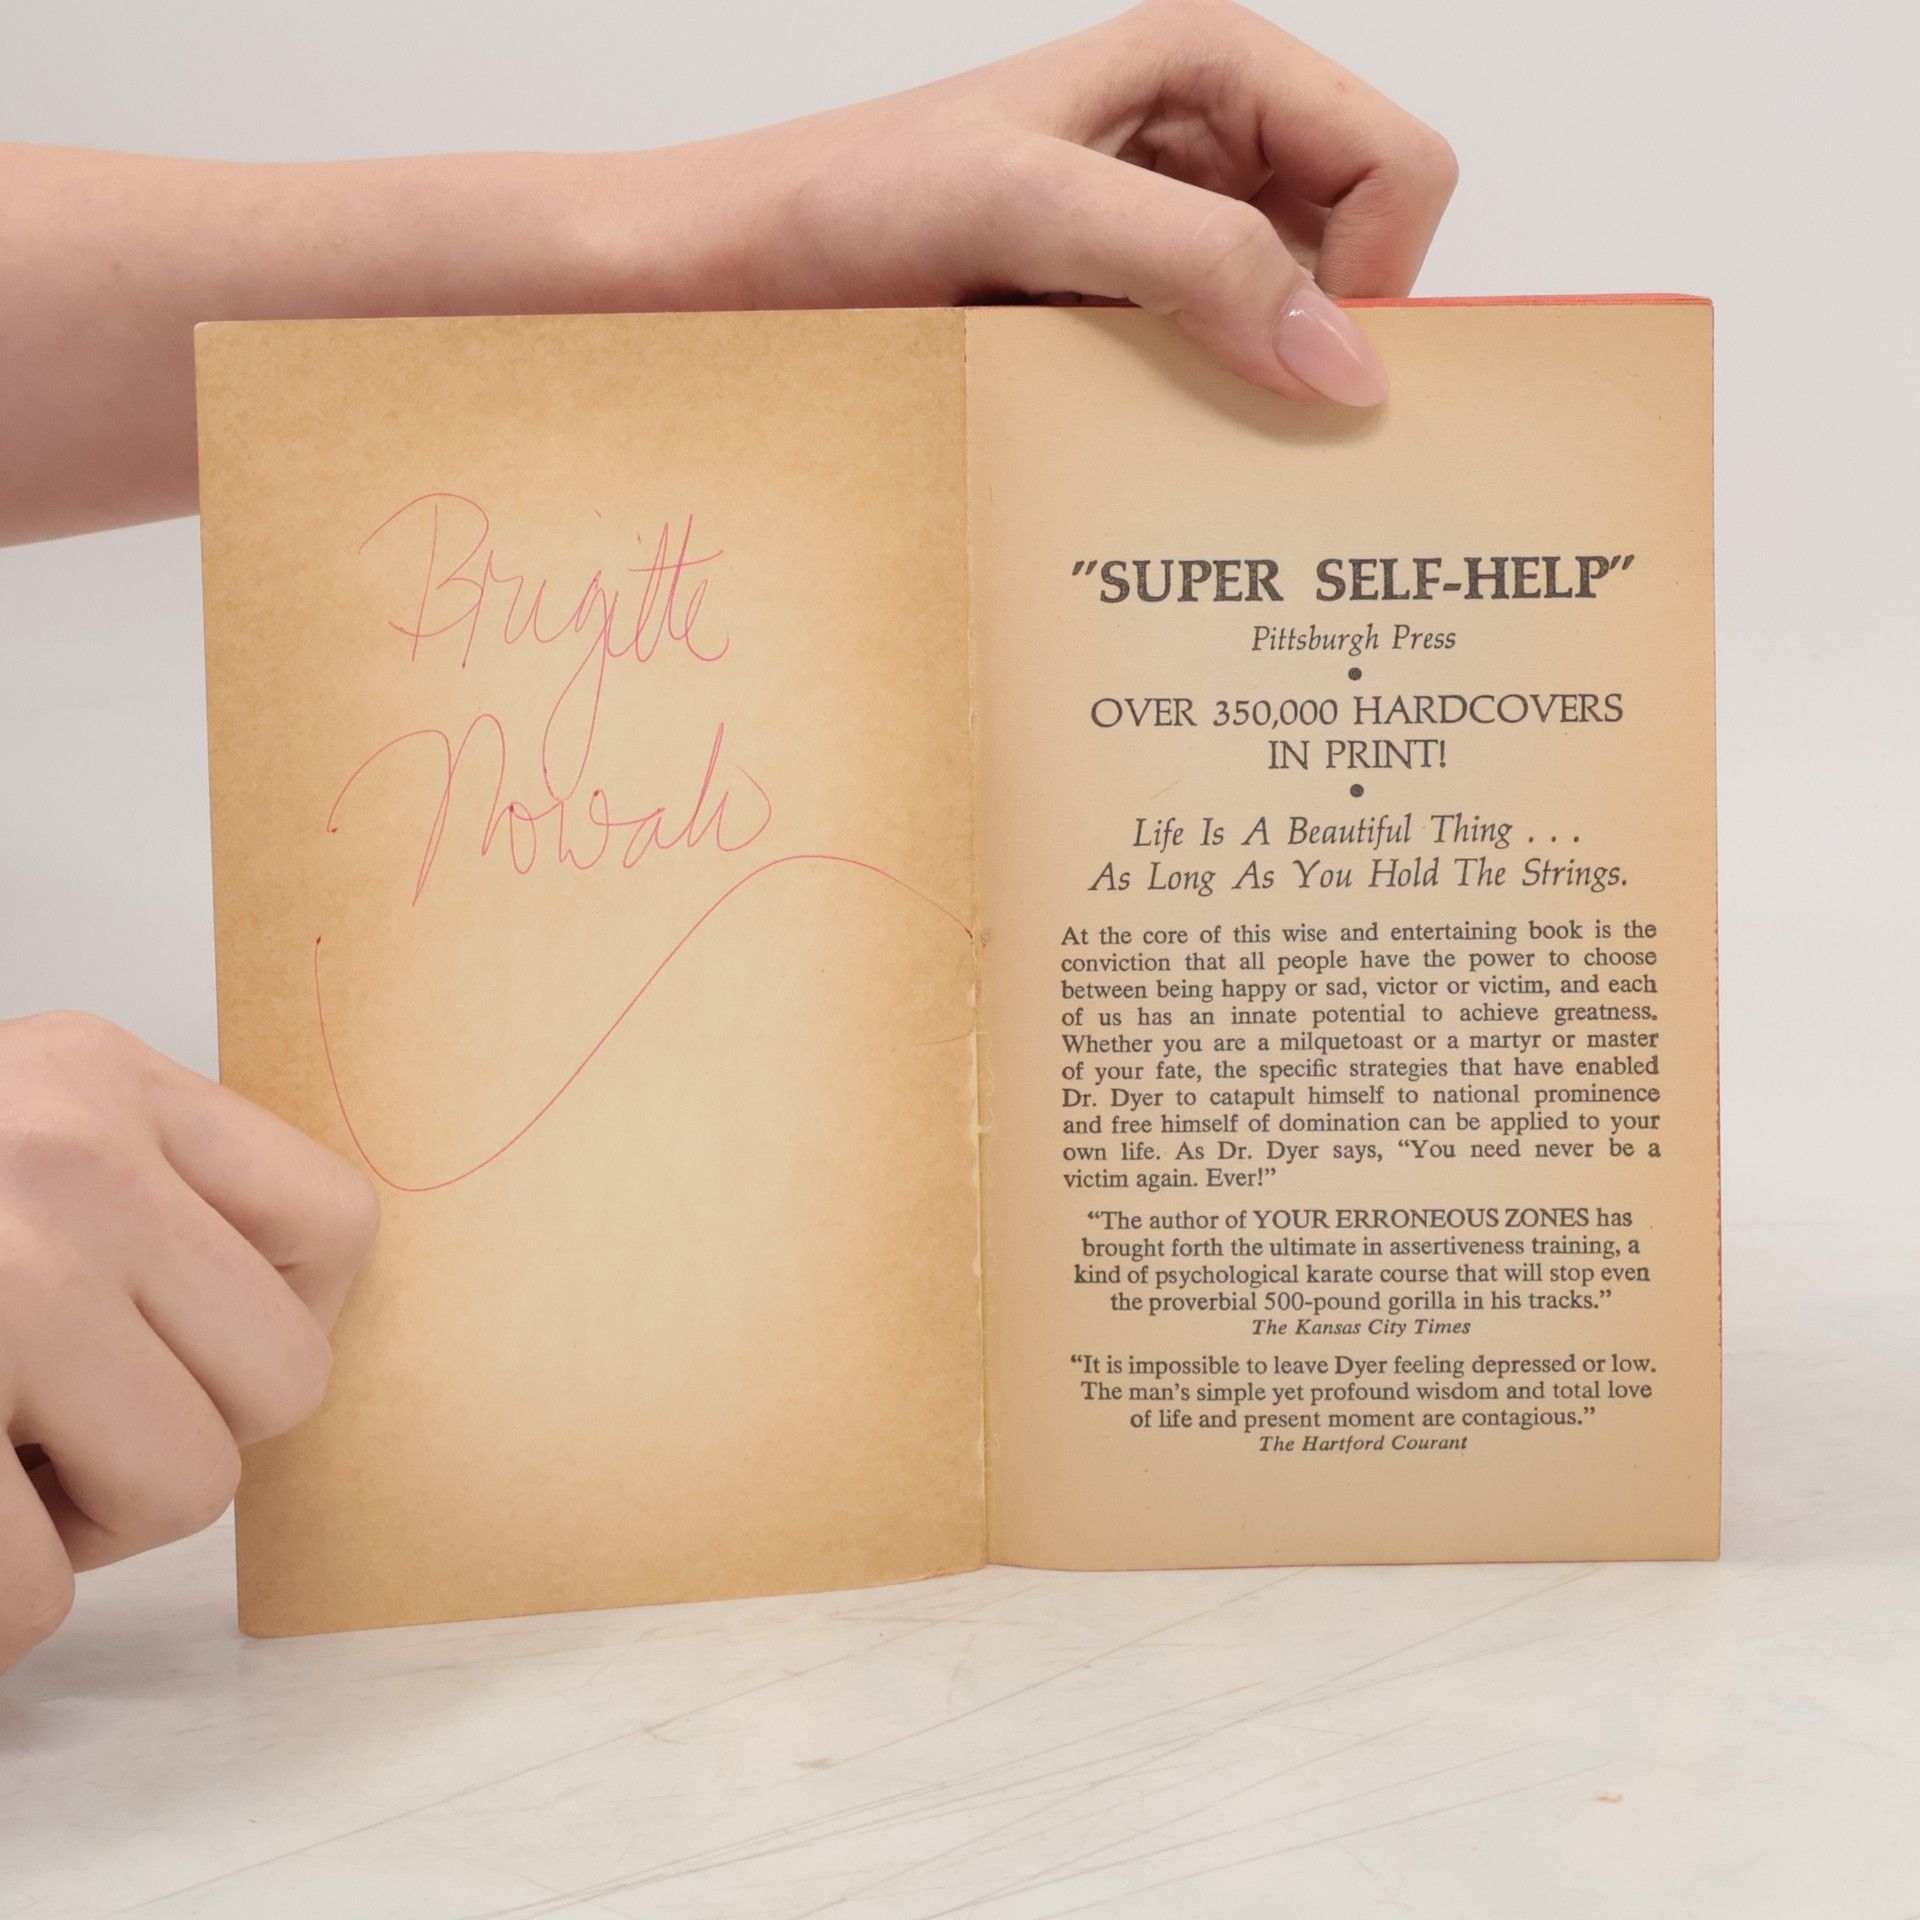 Brigitte
Nowak
"SUPER SELF-HELP"
Pittsburgh Press
•
OVER 350,000 HARDCOVERS
IN PRINT!
•
Life Is A Beautiful Thing . . .
As Long As You Hold The Strings.
At the core of this wise and entertaining book is the
conviction that all people have the power to choose
between being happy or sad, victor or victim, and each
of us has an innate potential to achieve greatness.
Whether you are a milquetoast or a martyr or master
of your fate, the specific strategies that have enabled
Dr. Dyer to catapult himself to national prominence
and free himself of domination can be applied to your
own life. As Dr. Dyer says, “You need never be a
victim again. Ever!”
“The author of YOUR ERRONEOUS ZONES has
brought forth the ultimate in assertiveness training, a
kind of psychological karate course that will stop even
the proverbial 500-pound gorilla in his tracks.”
The Kansas City Times
“It is impossible to leave Dyer feeling depressed or low.
The man’s simple yet profound wisdom and total love
of life and present moment are contagious.”
The Hartford Courant